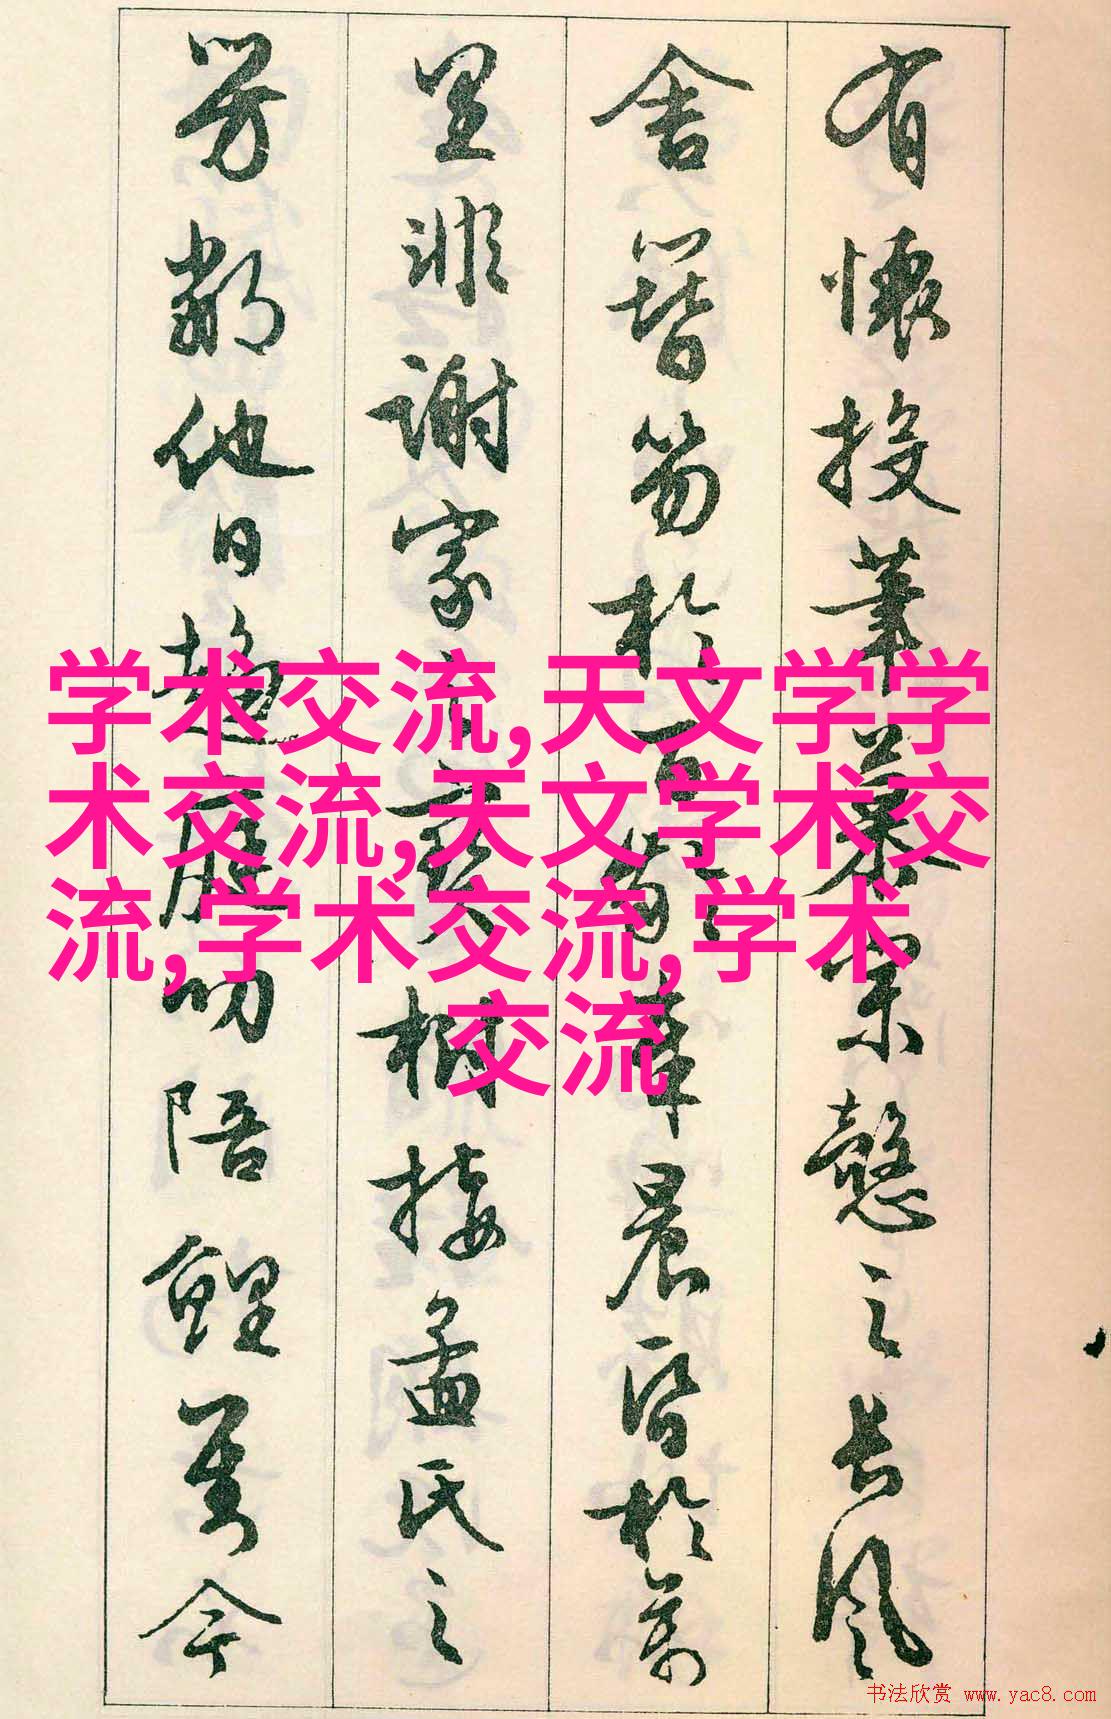 有懷投筆慕宗愨之長風
舍簪笏於百齡奉晨昏於萬
里非謝家之寶樹接孟氏之
芳鄰他日趨庭叨陪鯉對今
学术交流,天文学学
术交流,天文学术交
流,学术交流,学术
交流
书法欣赏 www.yac8.com